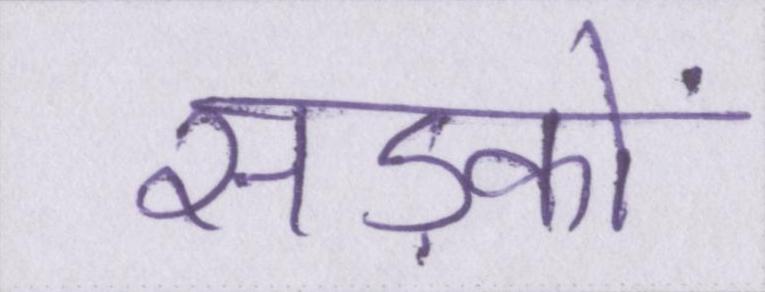 सड़कों